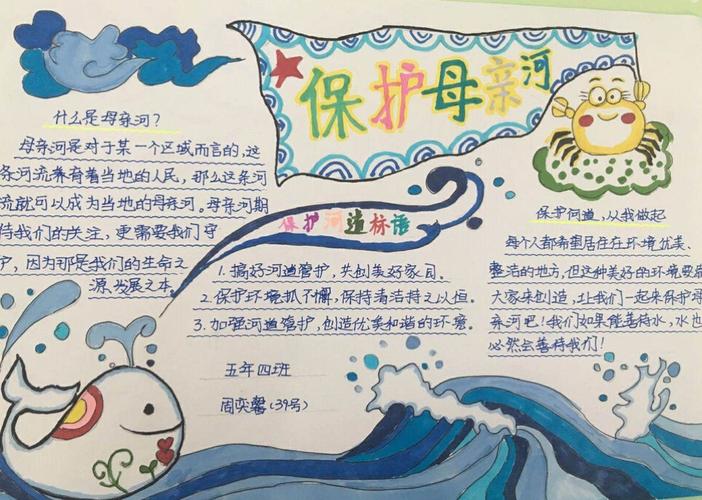 保护母亲河
什么是母亲河？
母亲河是对于某一个区域而言的，这
条河流养育着当地的人民，那么这条河
流就可以成为当地的母亲河。母亲河期
待我们的关注，更需要我们守
护，因为那是我们的生命之
源，发展之本。
保护河道标语
1.搞好河道管护，共创美好家园。
2.保护环境抓不懈，保持清洁持之以恒。
3.加强河道管护，创造优美和谐的环境。
五年四班
周奕馨(39号)
保护河道，从我做起
每个人都希望居住在环境优美、
整洁的地方，但这种美好的环境要靠
大家来创造，让我们一起来保护母
亲河吧！我们如果能善待水，水也
必然会善待我们！